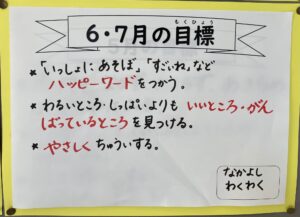 6・7月の目標
もくひょう
★「いっしょにあそぼ」、「すごいね」など
ハッピーワードをつかう。
★わるいところ・しっぱいよりも いいところ・がん
ばっているところを見つける。
★やさしくちゅういする。
なかよし
わくわく